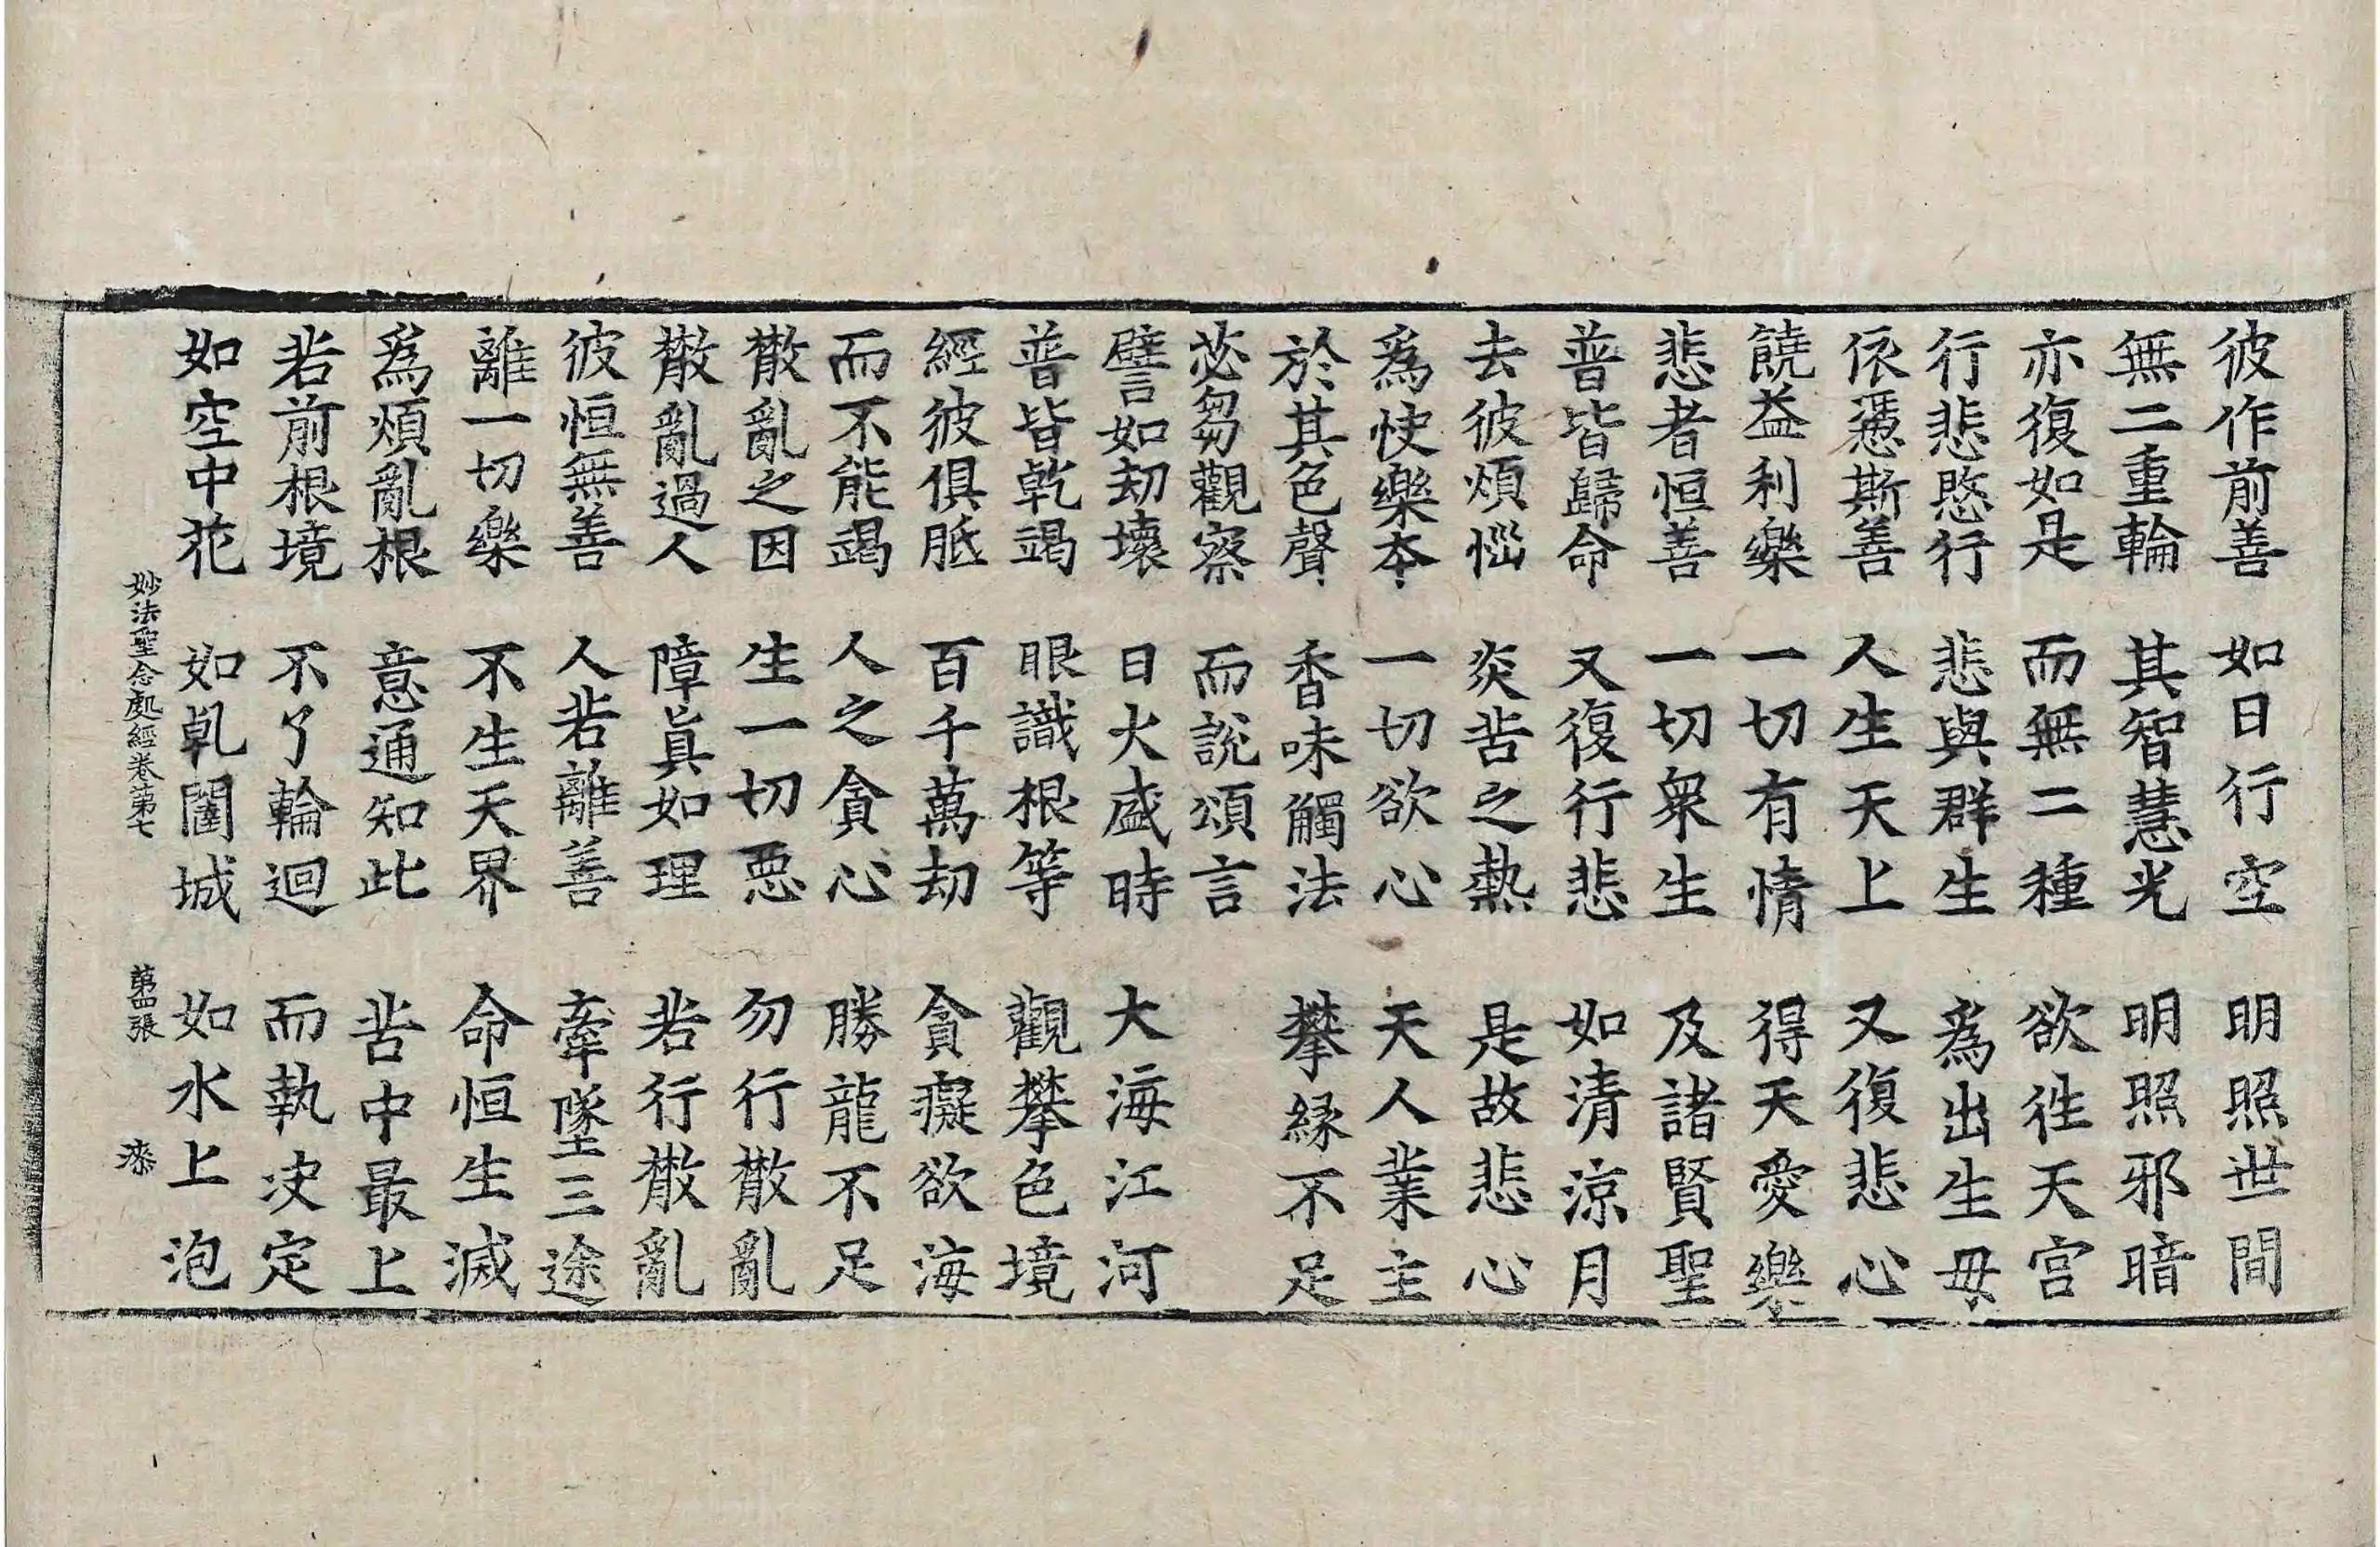 彼作前善　如日行空　明照世間
無二重輪　其智慧光　明照邪暗
亦復如是　而無二種　欲徃天宮
行悲愍行　悲與群生　爲出生毋
依慿斯善　人生天上　又復悲心
饒益利樂　一切有情　得天愛樂
悲者恒善　一切衆生　及諸賢聖
普皆歸命　又復行悲　如清涼月
去彼煩惱　炎苦之熱　是故悲心
爲快樂本　一切欲心　天人業主
於其色聲　香味觸法　攀緣不足
苾芻觀察　而說頌言
譬如劫壞　日火盛時　大海江河
普皆乾竭　眼識根等　觀攀色境
經彼俱胝　百千萬劫　貪癡欲海
而不能竭　人之貪心　勝龍不足
散亂之因　生一切惡　勿行散亂
散亂過人　障眞如理　若行散亂
彼恒無善　人若離善　牽墜三途
離一切樂　不生天界　命恒生滅
爲煩亂根　意通知此　苦中最上
若前根境　不了輪迴　而執决定
如空中花　如乹闥城　如水上泡
妙法聖念處經卷第七　第四張　漆